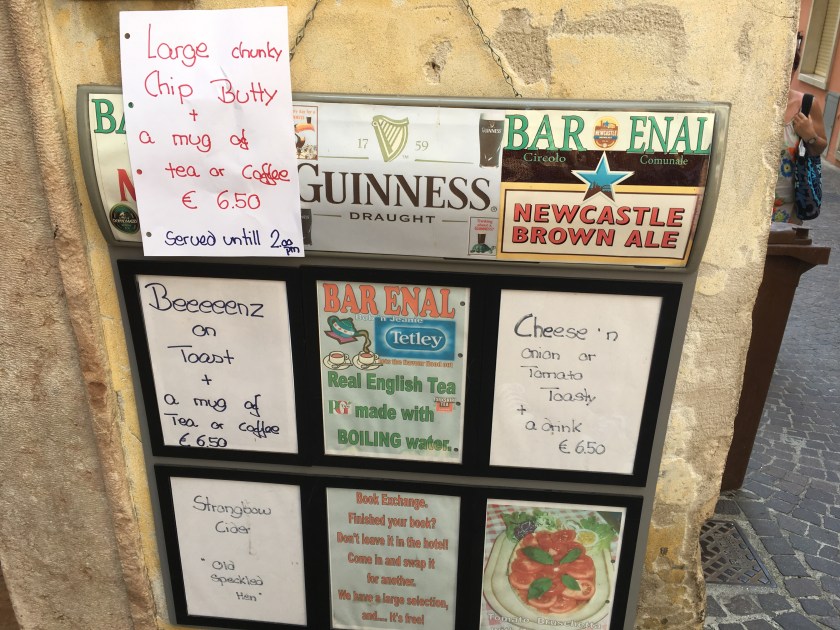 Large chunky
Chip Butty
+
a mug of
tea or Coffee
€ 6.50
Served untill 2.00 pm
BA
17 59
GUINNESS
DRAUGHT
GUINNESS
BAR ENAL
Circolo Comunale
NEWCASTLE
BROWN ALE
Beeeeenz
on
Toast
+
a mug of
Tea or coffee
€ 6.50
BAR ENAL
Tetley
Real English Tea
PG made with
BOILING water.
Cheese 'n
onion or
Tomato
Toasty
+
a drink
€ 6.50
Strongbow
Cider
"Old
Speckled
Hen"
Book Exchange.
Finished your book?
Don't leave it in the hotel!
Come in and swap it
for another.
We have a large selection,
and.... it's free!
Tomato Bruschetta